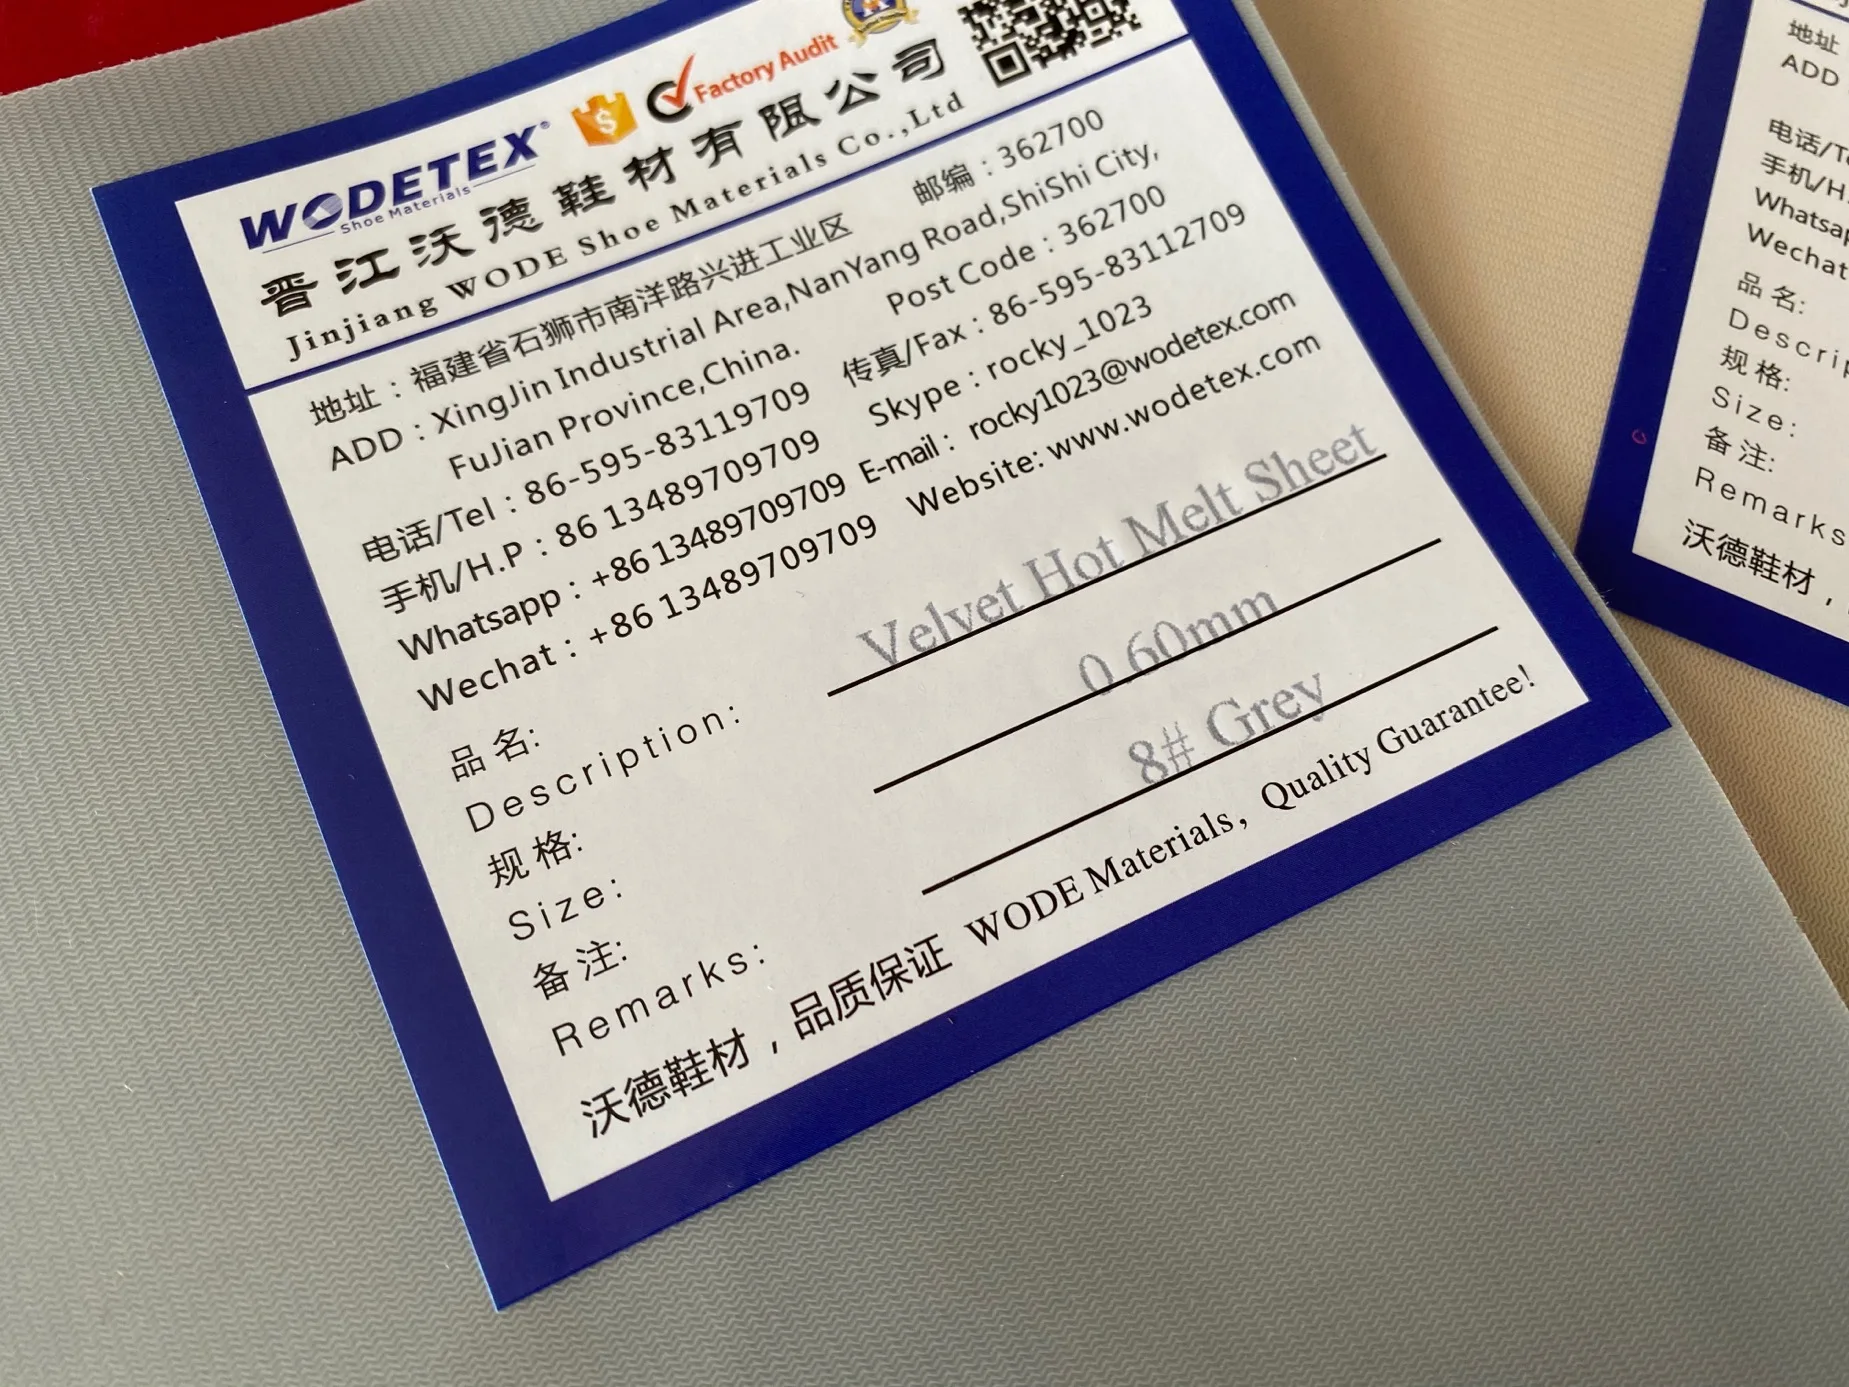 WODETEX®
Shoe Materials
$ Factory Audit
晋江沃德鞋材有限公司
Jinjiang WODE Shoe Materials Co.,Ltd
地址：福建省石狮市南洋路兴进工业区 邮编：362700
ADD：XingJin Industrial Area,NanYang Road,ShiShi City,
FuJian Province,China. Post Code：362700
电话/Tel：86-595-83119709 传真/Fax：86-595-83112709
手机/H.P：86 13489709709 Skype：rocky_1023
Whatsapp：+86 13489709709 E-mail：rocky1023@wodetex.com
Wechat：+86 13489709709 Website: www.wodetex.com
品名:
Description: Velvet Hot Melt Sheet
规格:
Size: 0.60mm
备注:
Remarks: 8# Grey
沃德鞋材，品质保证 WODE Materials，Quality Guarantee!
地址
ADD
电话/Te
手机/H.
Whatsap
Wechat
品名:
Descrip
规格:
Size:
备注:
Remarks
沃德鞋材，